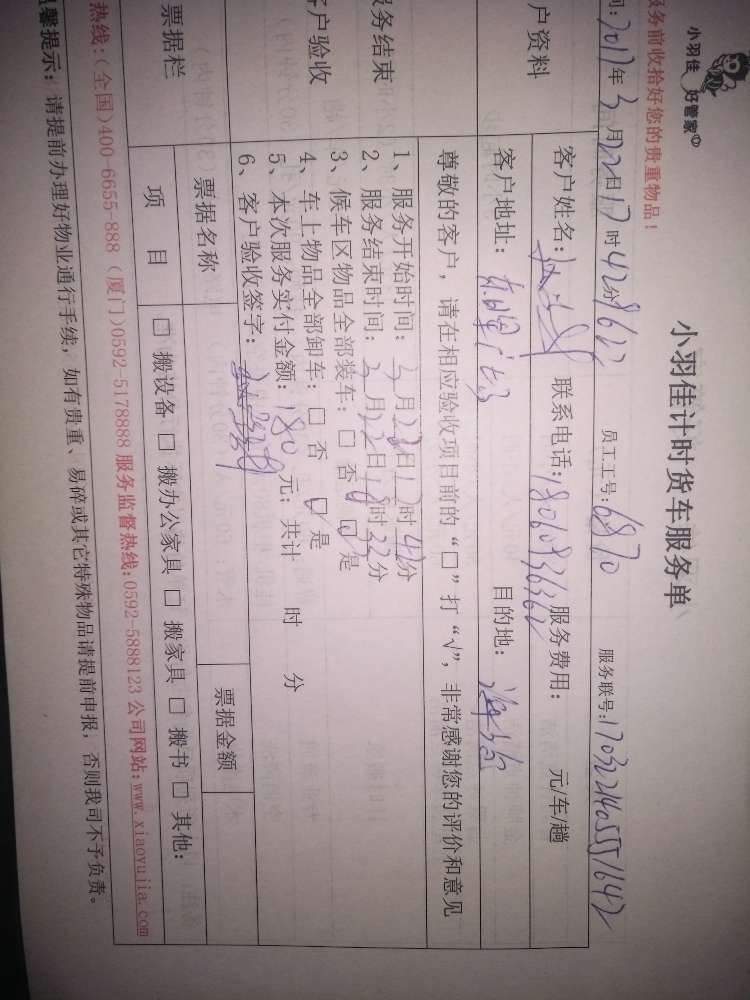 小羽佳 好管家
服务前收拾好您的贵重物品！
小羽佳计时货车服务单
间：2017年3月22日17时42分 员工工号：6870 服务联号：
户资料
客户姓名： 联系电话：18060936362 服务费用： 元/车/趟
客户地址： 目的地：
尊敬的客户，请在相应验收项目前的“□”打“√”，非常感谢您的评价和意见
务结束
客户验收
1、服务开始时间：3月22日17时42分
2、服务结束时间：3月22日18时32分
3、候车区物品全部装车：□ 否 □ 是
4、车上物品全部卸车：□ 否 □ 是
5、本次服务实付金额：180 元；共计 时 分
6、客户验收签字：
票据栏
票据名称 票据金额
项 目 □ 搬设备 □ 搬办公家具 □ 搬家具 □ 搬书 □ 其他：
热线：(全国)400-6655-888 (厦门)0592-5178888 服务监督热线：0592-5888123 公司网站：www.xiaoyujia.com
温馨提示：请提前办理好物业通行手续，如有贵重、易碎或其它特殊物品请提前申报，否则我司不予负责。